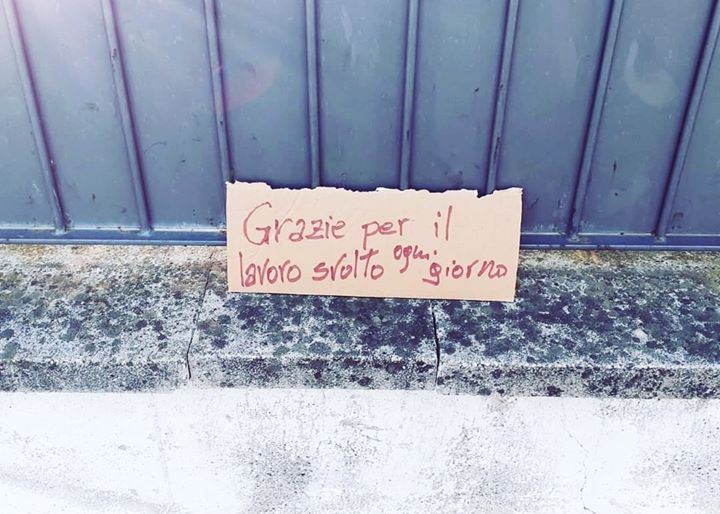 Grazie per il
lavoro svolto ogni giorno